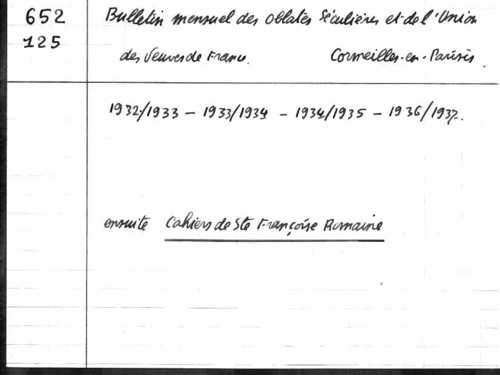 652 Bulletin mensuel des Oblates Séculières et de l'Union
125 des Veuves de France. Cormeilles-en-Parisis
1932/1933 - 1933/1934 - 1934/1935 - 1936/1937.
ensuite Cahiers de Ste Françoise Romaine